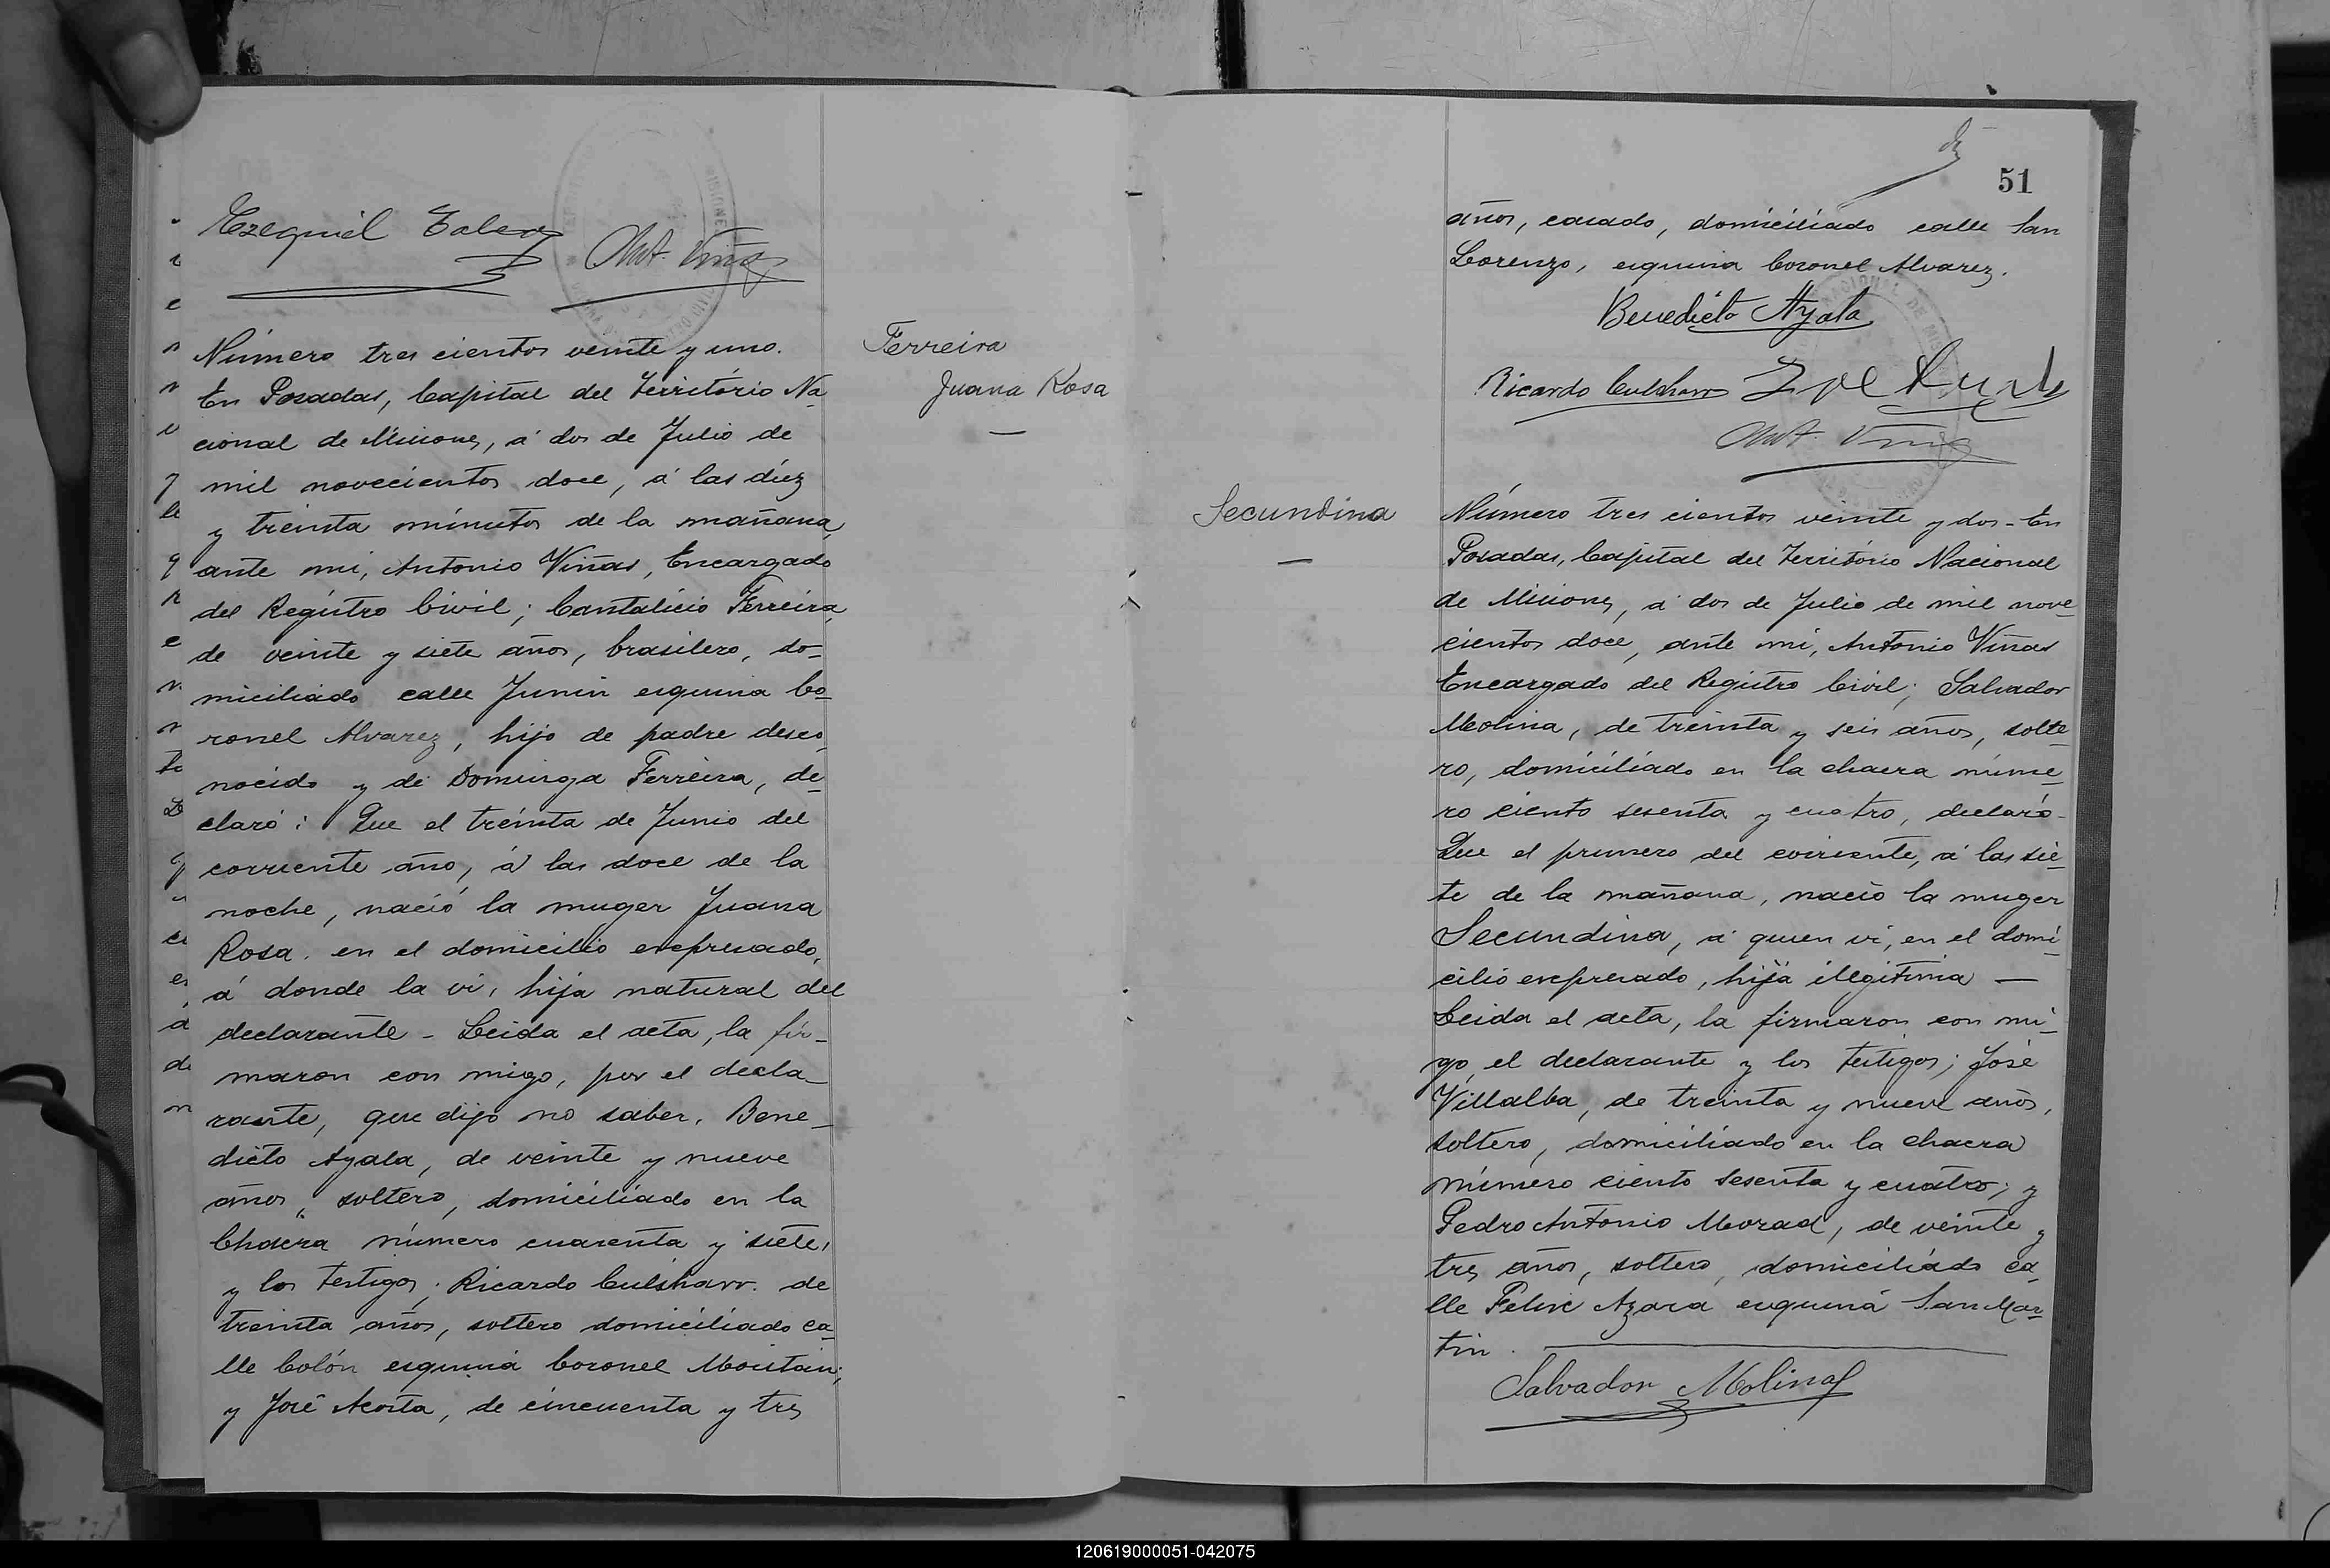 Ezequiel
Ant. Viñas
Número tres cientos veinte y uno.
En Posadas, Capital del Território Na-
cional de Misiones, á dos de Julio de
mil novecientos doce, á las diez
y treinta minutos de la mañana,
ante mi, Antonio Viñas, Encargado
del Registro Civil; Cantalicio Ferreira,
de veinte y siete años, brasilero, do-
miciliado calle Junin esquina Co-
ronel Alvarez, hijo de padre desco-
nocido y de Dominga Ferreira, de-
claró: Que el treinta de Junio del
corriente año, á las doce de la
noche, nació la muger Juana
Rosa. en el domicilio expresado,
á donde la vi, hija natural del
declarante - Leida el acta, la fir-
maron con migo, por el decla-
rante, que dijo no saber, Bene-
dicto Ayala, de veinte y nueve
años, soltero, domiciliado en la
Chacra número cuarenta y siete,
y los testigos; Ricardo Culshaw. de
treinta años, soltero domiciliado ca-
lle Colón esquina Coronel
y José Acosta, de cincuenta y tres
Ferreira
Juana Rosa
51
años, casado, domiciliado calle San
Lorenzo, esquina Coronel Alvarez.
Benedicto Ayala
Ricardo Culshaw
Ant. Viñas
Secundina
Número tres cientos veinte y dos - En
Posadas, Capital del Território Nacional
de Misiones, á dos de Julio de mil nove-
cientos doce, ante mi, Antonio Viñas
Encargado del Registro Civil; Salvador
Molina, de treinta y seis años, solte-
ro, domiciliado en la chacra núme-
ro ciento sesenta y cuatro, declaró -
Que el primero del corriente, á las sie-
te de la mañana, nació la muger
Secundina, á quien vi, en el domi-
cilio expresado, hija illegitima —
Leida el acta, la firmaron con mi-
go, el declarante y los testigos; José
Villalba, de treinta y nueve años,
soltero, domiciliado en la chacra
número ciento sesenta y cuatro; y
Pedro Antonio Morad, de veinte y
tres años, soltero, domiciliado ca-
lle Felix Azara esquina San Mar-
tin.
Salvador Molina
120619000051-042075